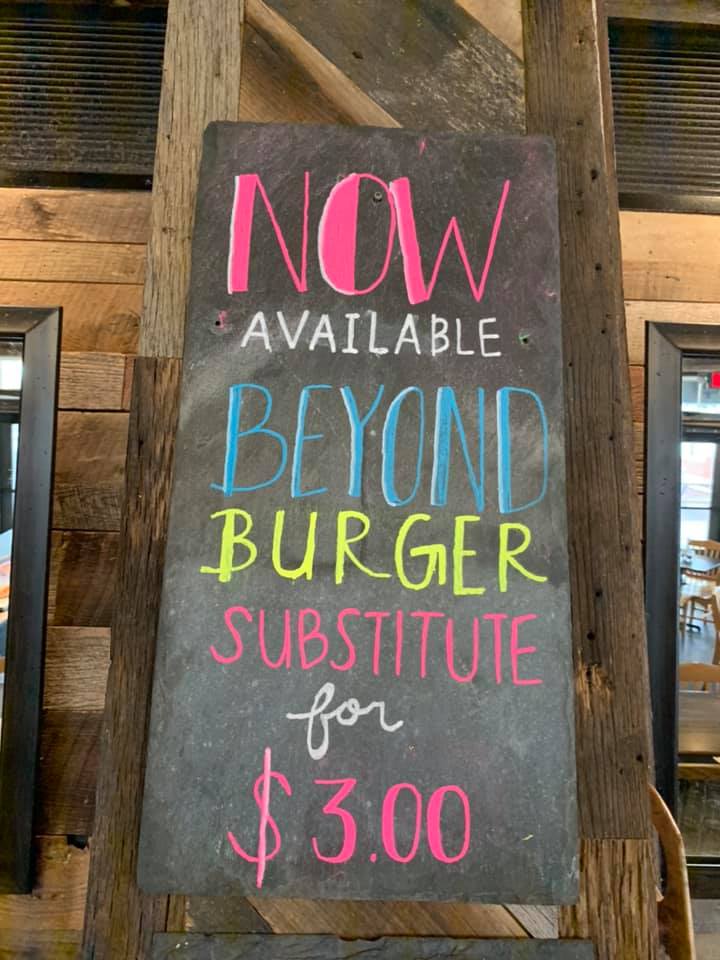 NOW
AVAILABLE
BEYOND
BURGER
SUBSTITUTE
for
$3.00